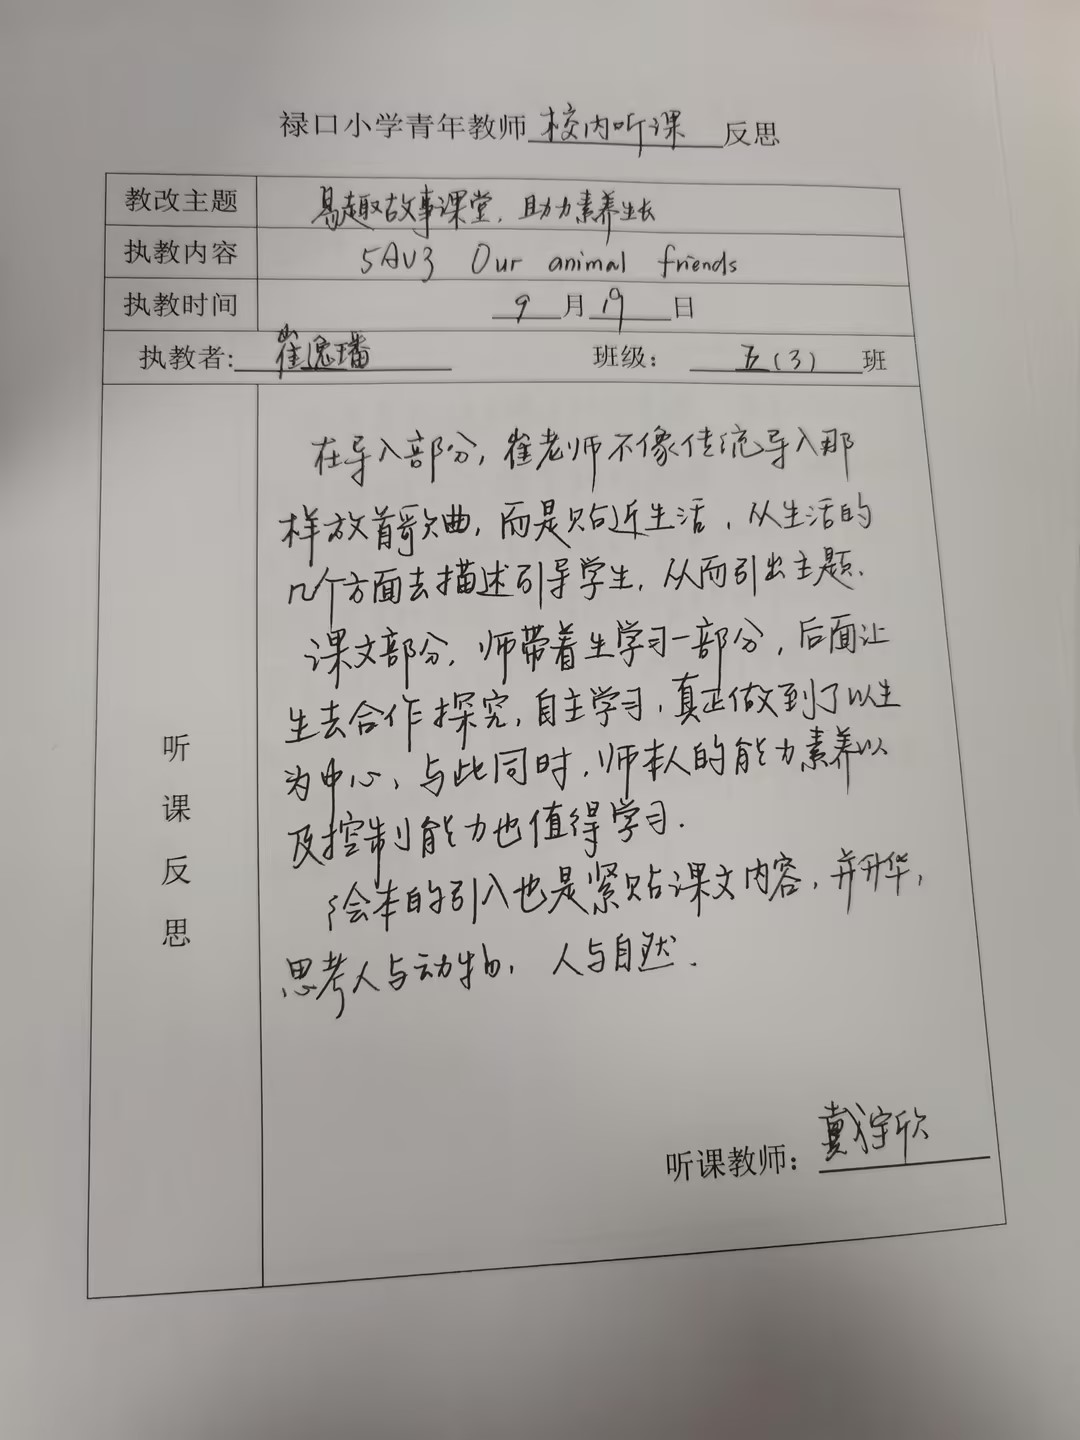 禄口小学青年教师校内听课反思
教改主题 易趣故事课堂，助力素养生长
执教内容 5AU3 Our animal friends
执教时间 9月19日
执教者：崔逸璠 班级：五（3）班
听课反思
在导入部分，崔老师不像传统导入那
样放首歌曲，而是贴近生活，从生活的
几个方面去描述引导学生，从而引出主题.
课文部分，师带着生学习一部分，后面让
生去合作探究，自主学习，真正做到了以生
为中心，与此同时，师本人的能力素养以
及控制能力也值得学习.
绘本的引入也是紧贴课文内容，并升华，
思考人与动物，人与自然.
听课教师：戴宇欣